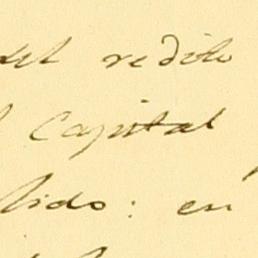 del redito
Capital
lido: en